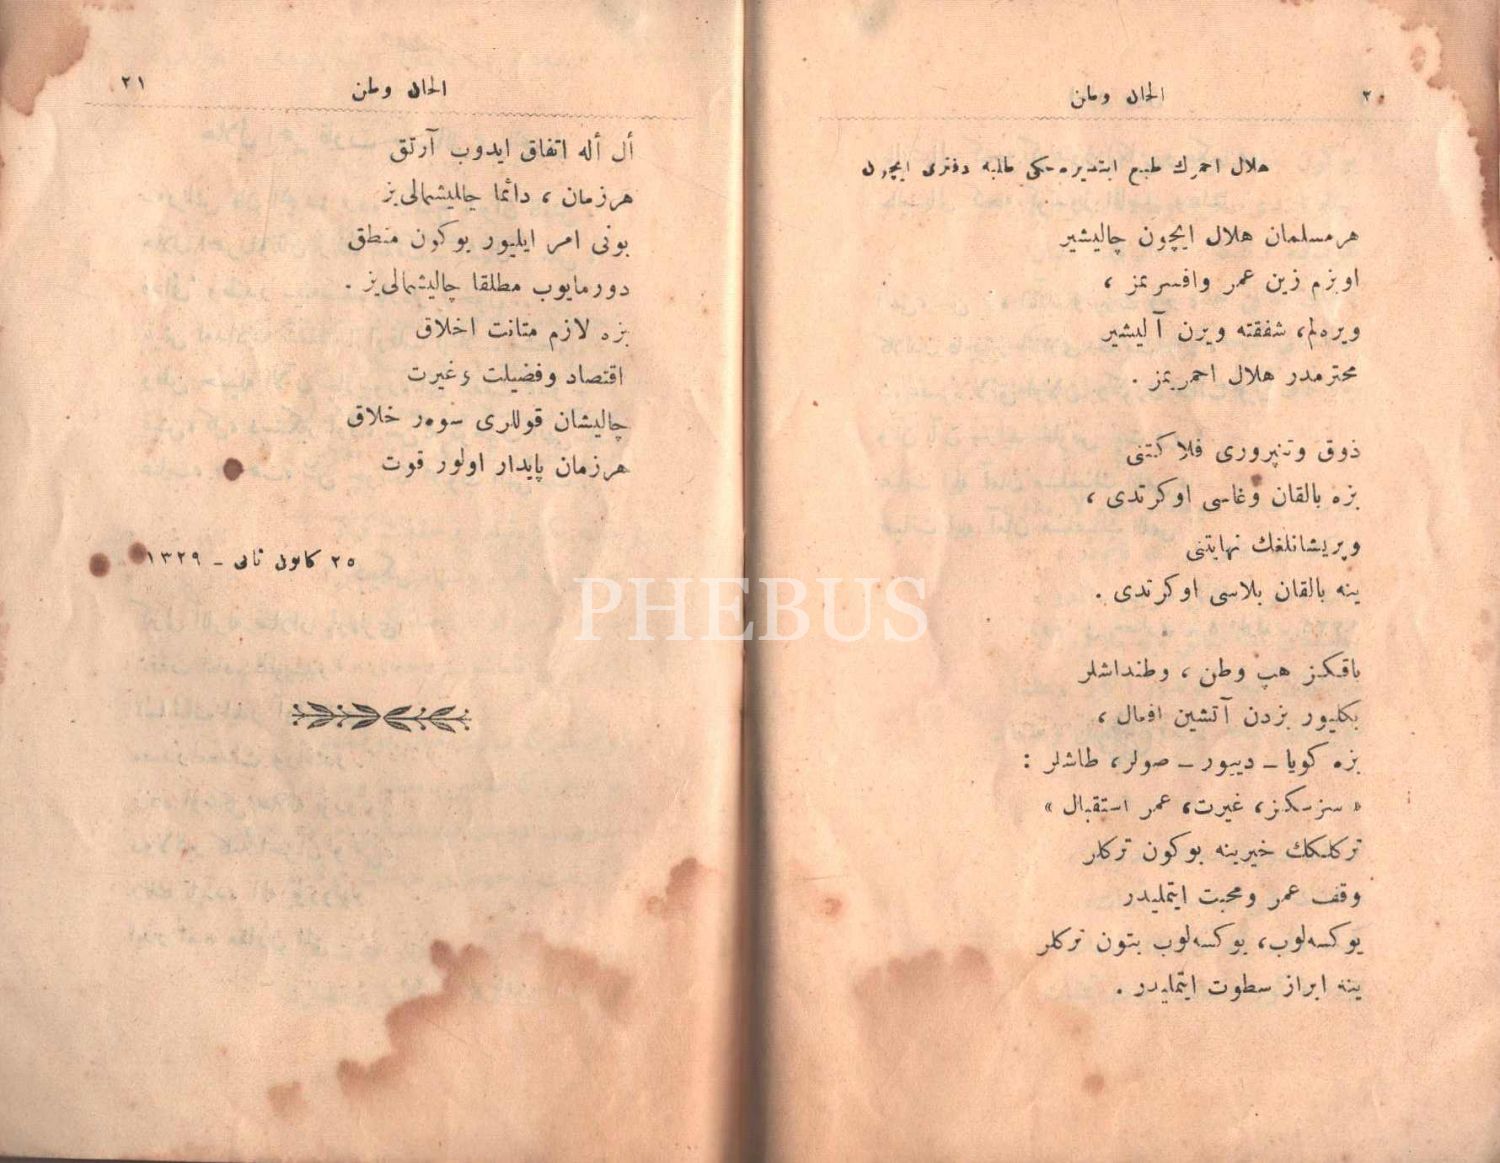 ٢٠
الحان وطن
هلال احمرك طبع ايتديره‌جكى طلبه دفترى ايچون
هرمسلمان هلال ايچون چاليشير
اوبزم زين عمر وافسريمز ،
ويره‌لم، شفقته ويرن آليشير
محترمدر هلال احمريمز .
ذوق وتنپرورى فلاكتنى
بزه بالقان وغاسى اوكرتدى ،
وپريشانلغك نهايتنى
ينه بالقان بلاسى اوكرتدى .
باقيكز هپ وطن ، وطنداشلر
بكليور بزدن آتشين افعال ،
بزه كويا ـ ديیور ـ صولر، طاشلر :
« سزسكز، غيرت، عمر استقبال »
تركلكك خيرينه بوكون تركلر
وقف عمر ومحبت ايتمليدر
يوكسه‌لوب، يوكسه‌لوب بتون تركلر
ينه ابراز سطوت ايتمليدر .
٢١
الحان وطن
أل أله اتفاق ايدوب آرتق
هرزمان ، دائما چاليشمالى‌يز
بونى امر ايليور بوكون منطق
دورمايوب مطلقا چاليشمالى‌يز .
بزه لازم متانت اخلاق
اقتصاد وفضيلت وغيرت
چاليشان قوللرى سوه‌ر خلاق
هرزمان پايدار اولور قوت
٢٥ كانون ثانى ـ ١٣٢٩
PHEBUS